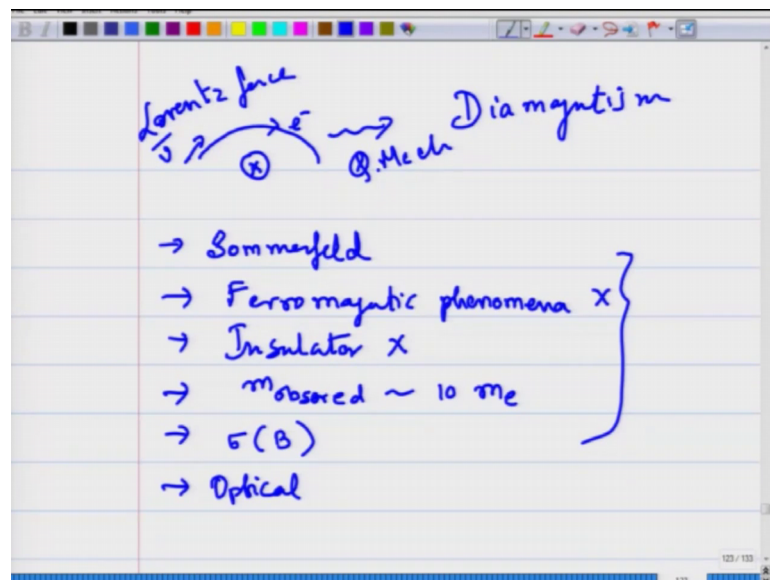 Lorentz force
v e⁻ Diamagnetism
⊗ Q. Mech
→ Sommerfeld
→ Ferromagnetic phenomena X
→ Insulator X
→ m observed ~ 10 me
→ σ(B)
→ Optical
123 / 133